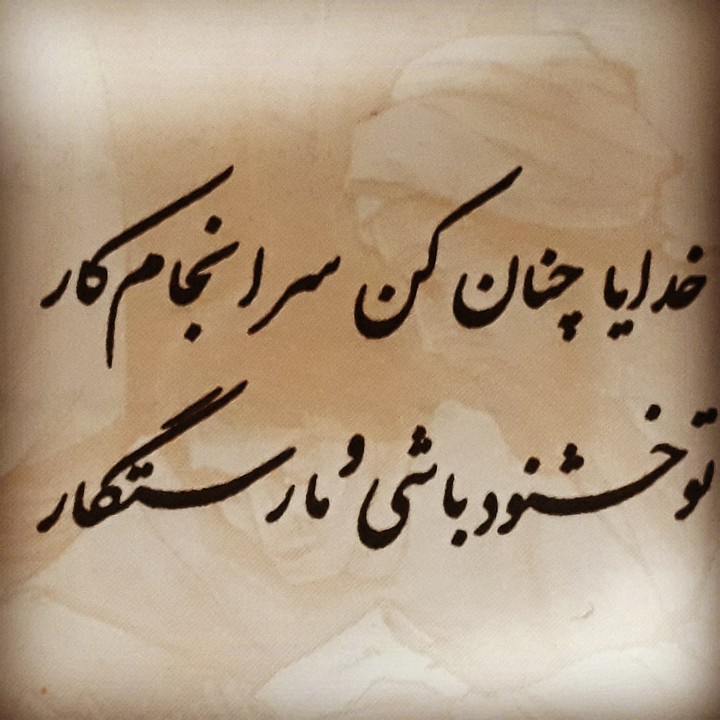 خدایا چنان کن سرانجام کار
تو خشنود باشی و ما رستگار